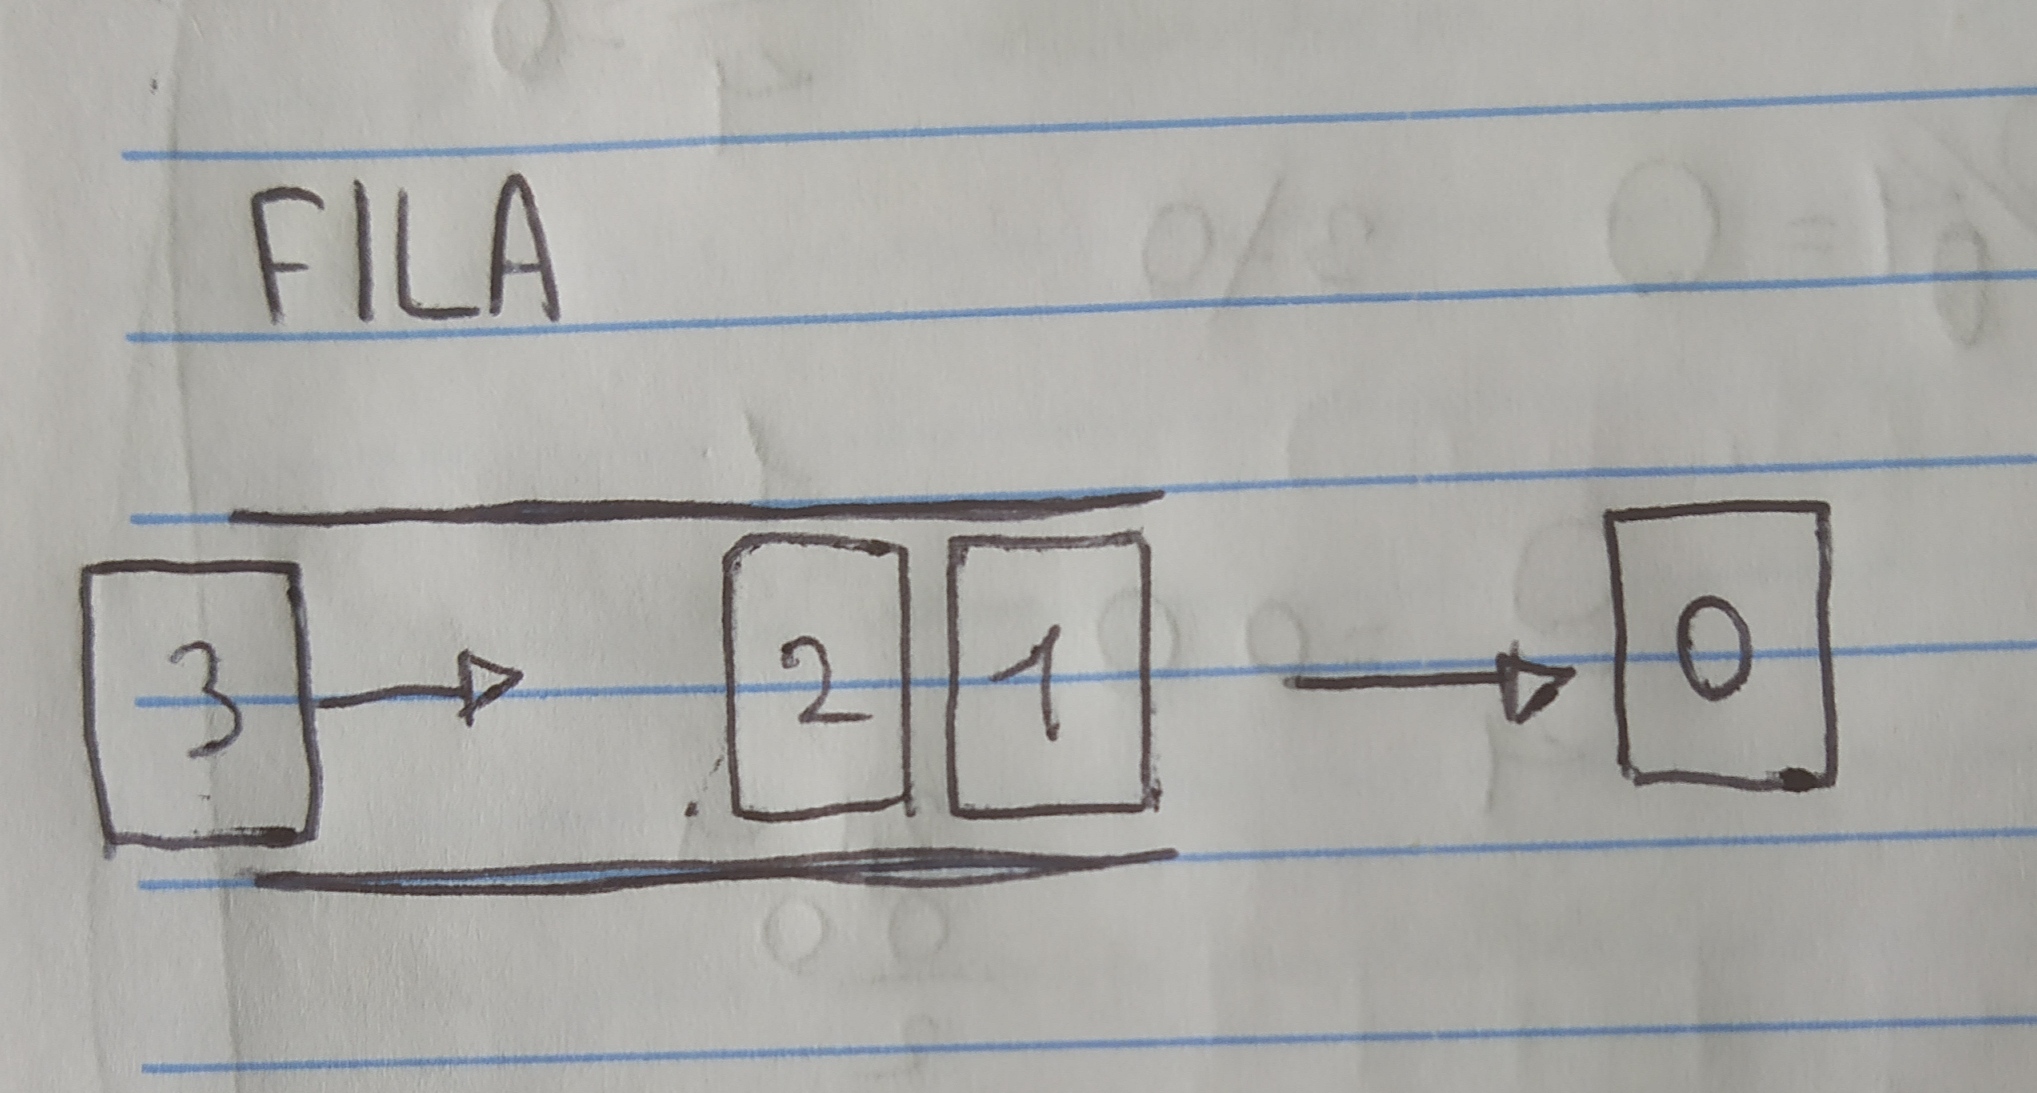 FILA
3 2 1 0